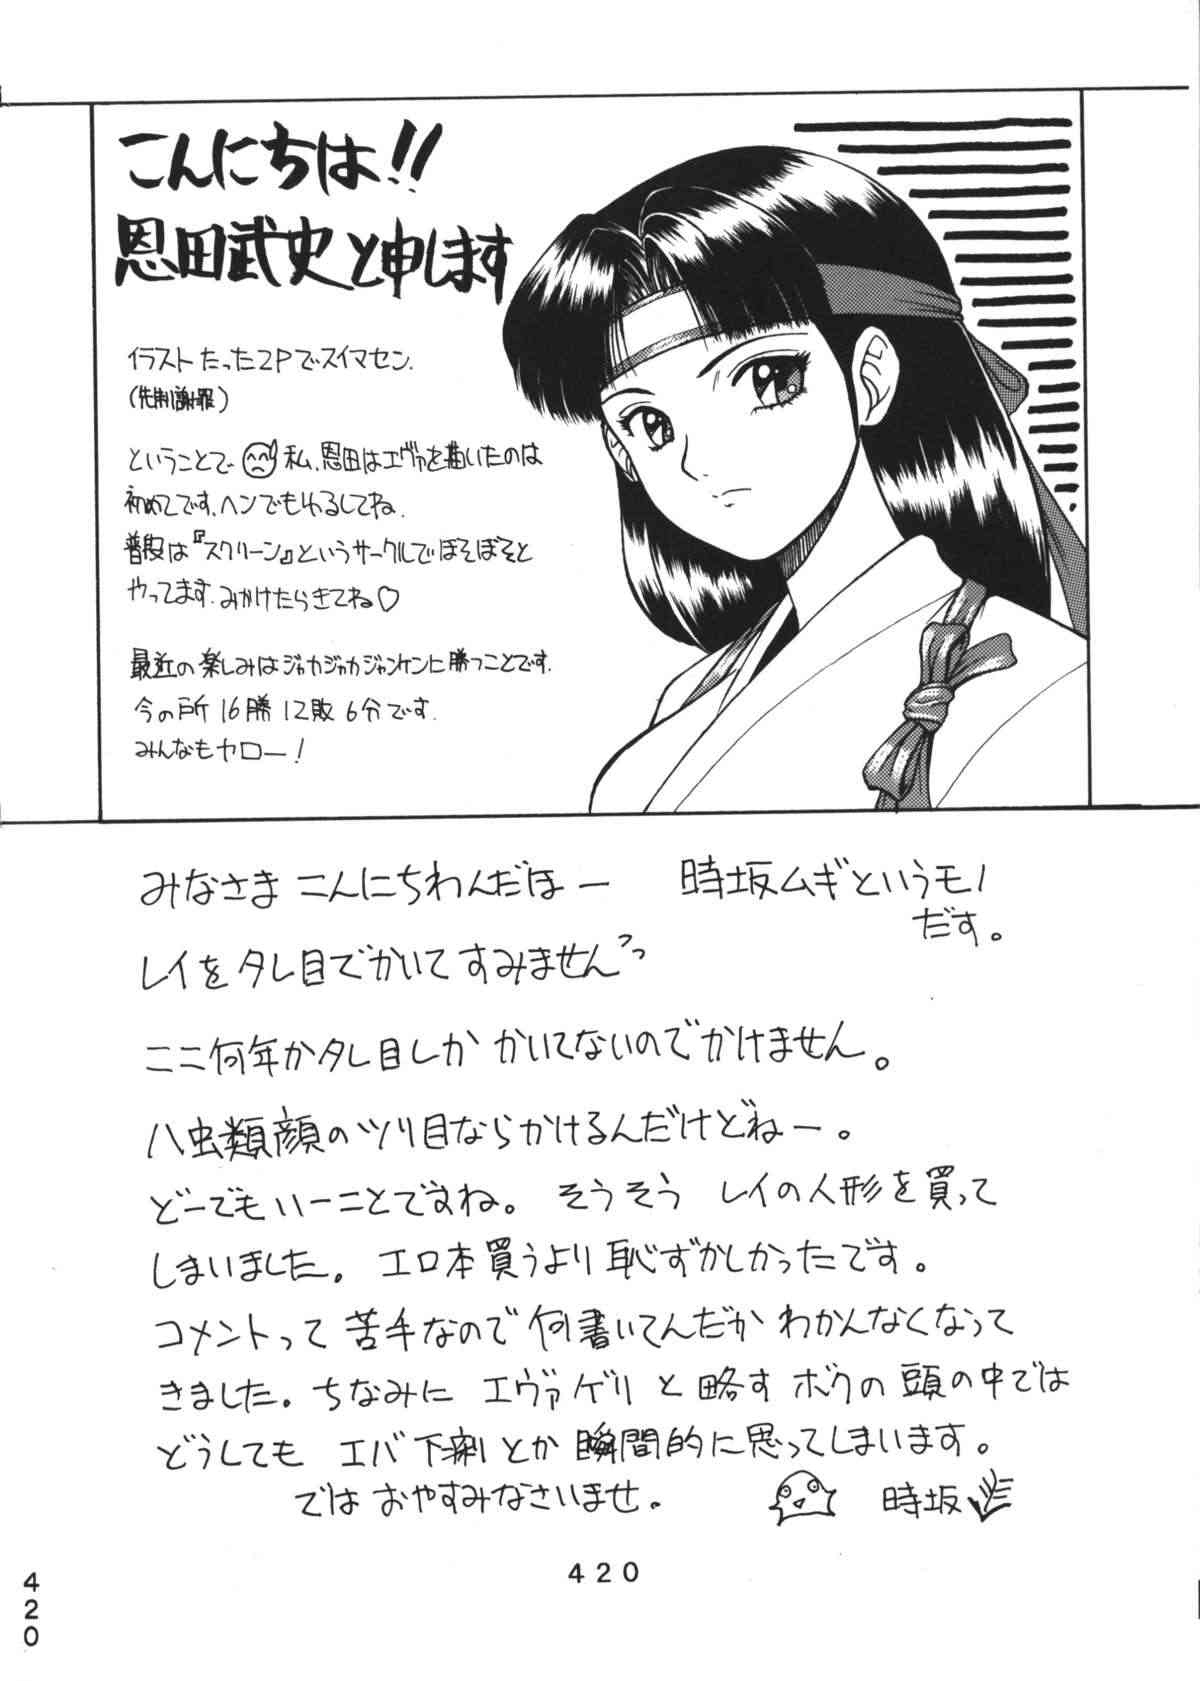 こんにちは!!
恩田武史と申します
イラストたった2Pでスイマセン.
(先制謝罪)
ということで 私、恩田はエヴァを描いたのは
初めてです.ヘンでもゆるしてね.
普段は『スクリーン』というサークルでぼそぼそと
やってます.みかけたらきてね♡
最近の楽しみはジャカジャカジャンケンに勝つことです.
今の所16勝12敗6分です.
みんなもヤロー!
みなさま こんにちわんだほー 時坂ムギというモノ
だす。
レイをタレ目でかいてすみませんっっ
ここ何年かタレ目しか かいてないのでかけません。
ハ虫類顔のツリ目ならかけるんだけどねー。
どーでもいーことですね。 そうそう レイの人形を買って
しまいました。エロ本買うより恥ずかしかったです。
コメントって苦手なので何書いてんだか わかんなくなって
きました。ちなみに エヴァゲリ と略す ボクの頭の中では
どうしても エバ下痢とか瞬間的に思ってしまいます。
では おやすみなさいませ。 時坂
420
420